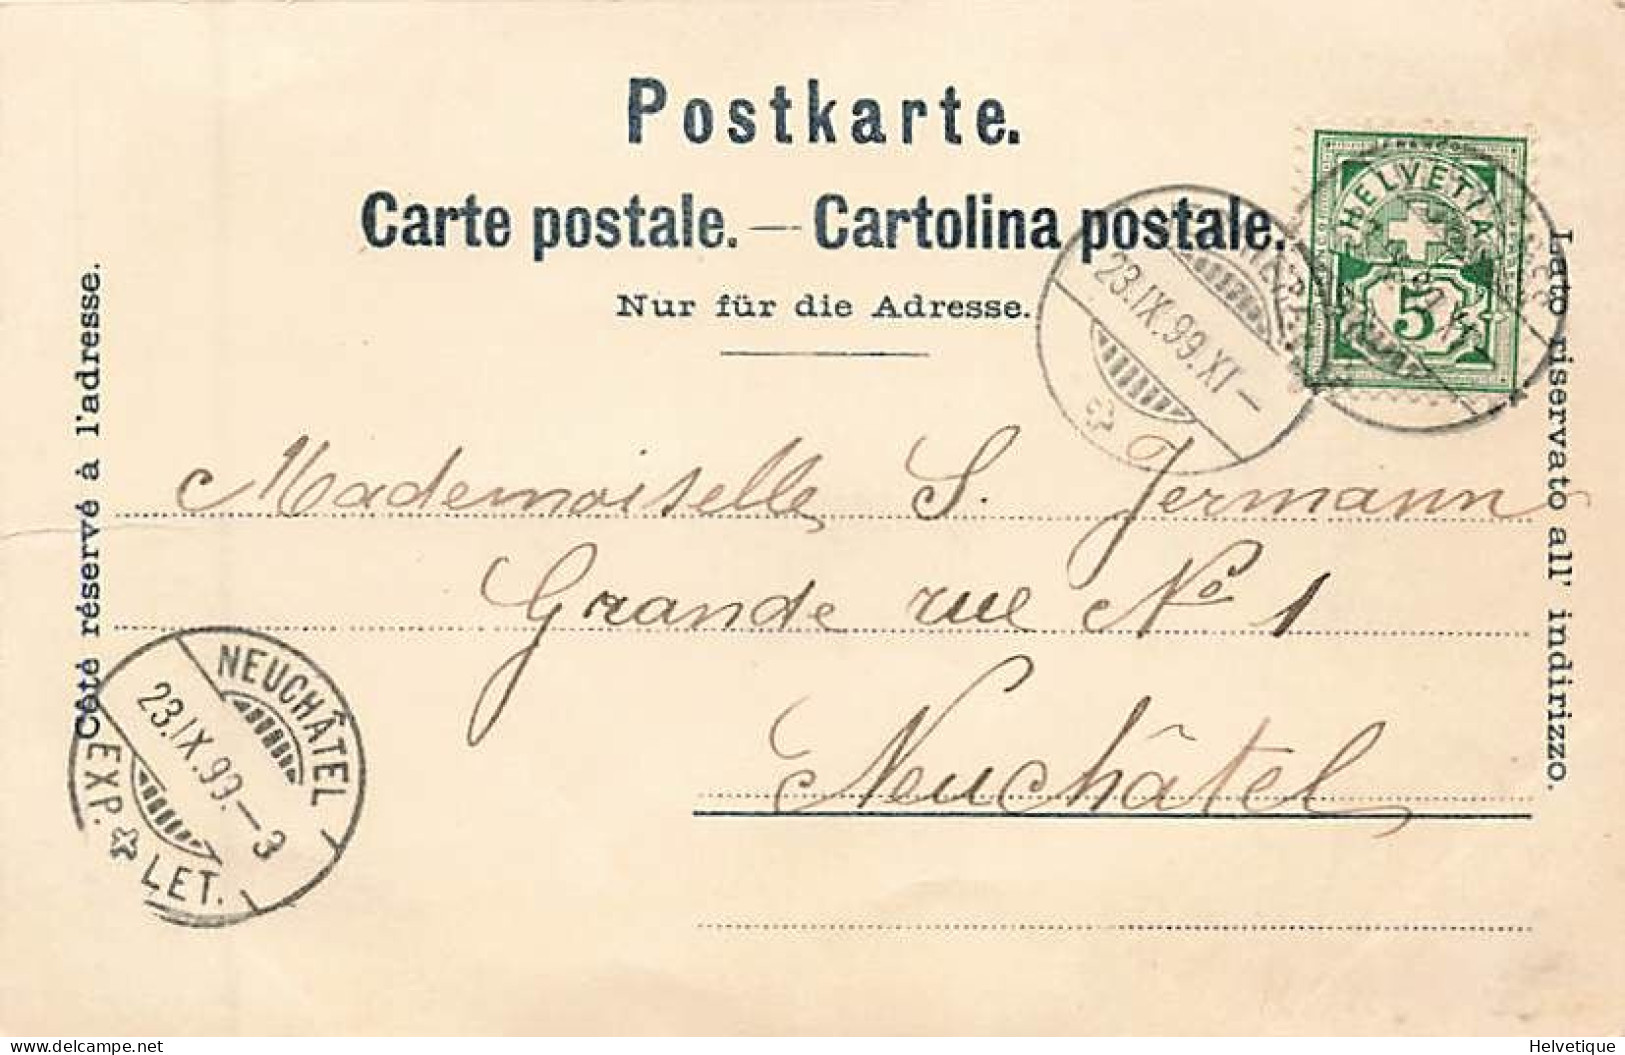 Postkarte.
Carte postale. — Cartolina postale.
Nur für die Adresse.
Côté réservé à l'adresse.
Lato riservato all' indirizzo.
FRANCO
HELVETIA
5
23.IX.99.XI–
Mademoiselle S. Jermann
Grande rue No 1
Neuchâtel
NEUCHÂTEL
23.IX.99.–3
EXP. LET.
delcampe.net
Helvetique